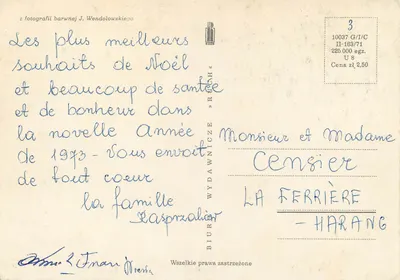 z fotografii barwnej J. Wendołowskiego
Les plus meilleurs
souhaits de Noël
et beaucoup de santée
et de bonheur dans
la novelle Année
de 1973 - Vous envoit
de tout coeur
la famille
Kasprzaków
BIURO WYDAWNICZE «RUCH»
3
10037 G/I/C
II-163/71
225 000 egz.
U S
Cena zł 2,50
Monsieur et Madame
Censier
LA FERRIÈRE
- HARANG
Wszelkie prawa zastrzeżone